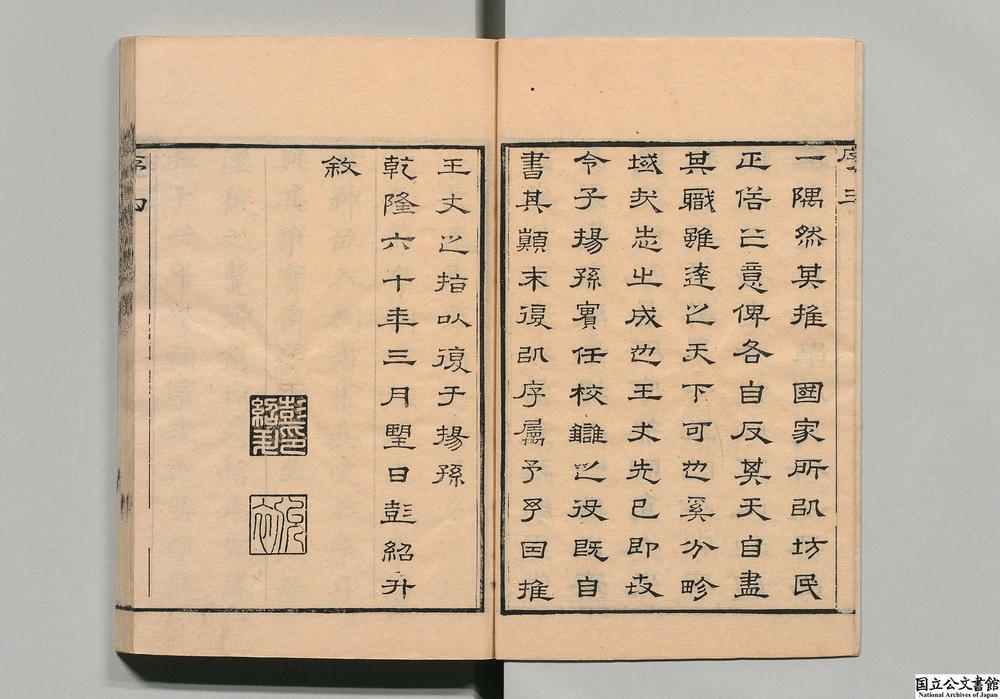 序 三
一隅然其推 國家所以坊民
正俗之意俾各自反其天自盡
其職雖達之天下可也奚分畛
域哉志之成也王丈先已即世
令子揚孫實任校讎之役既自
書其顚末復以序屬予予因推
王丈之指以復于揚孫
乾隆六十年三月望日彭紹升
敘
彭紹升印
序 四
国立公文書館
National Archives of Japan